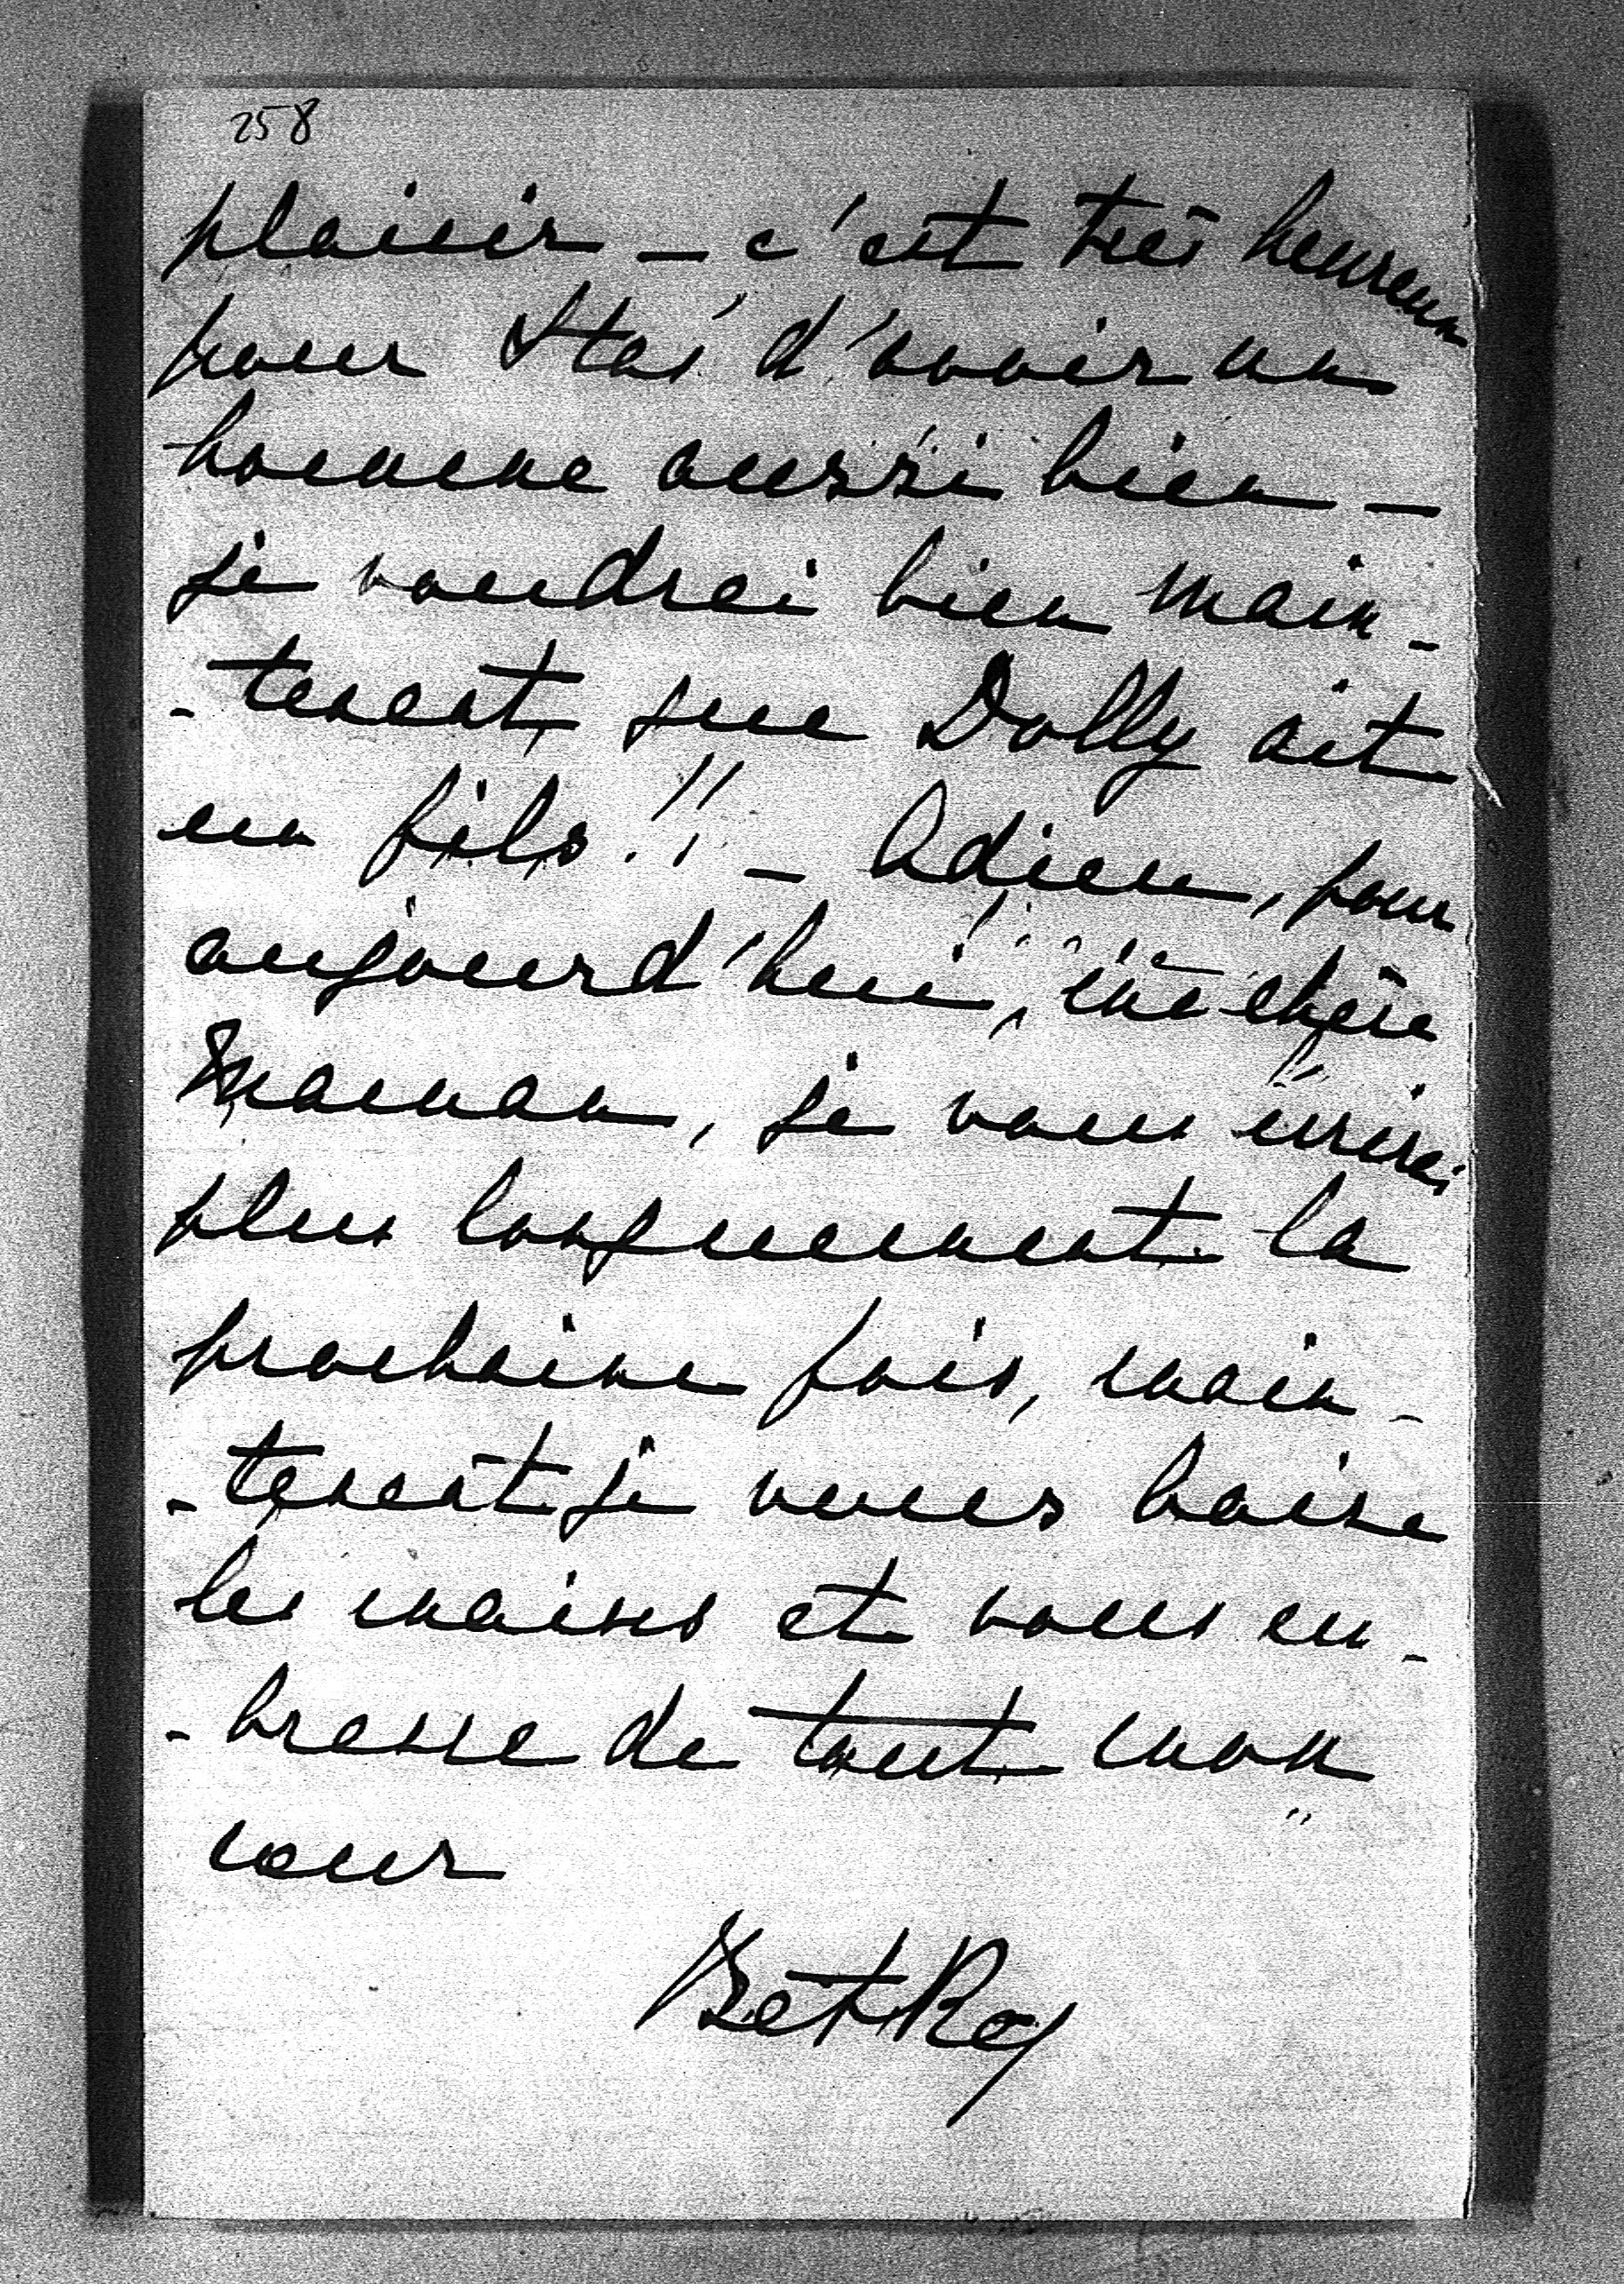 258
plaisir – c'est très heureux
pour Staś d'avoir un
homme aussi bien –
je voudrai bien main-
-tenant que Dolly ait
un fils!! – Adieu, pour
aujourd'hui, ma chère
Maman, je vous écrirai
plus longuement la
prochaine fois, main-
-tenant je vous baise
les mains et vous em-
-brasse de tout mon
cœur
BetKa